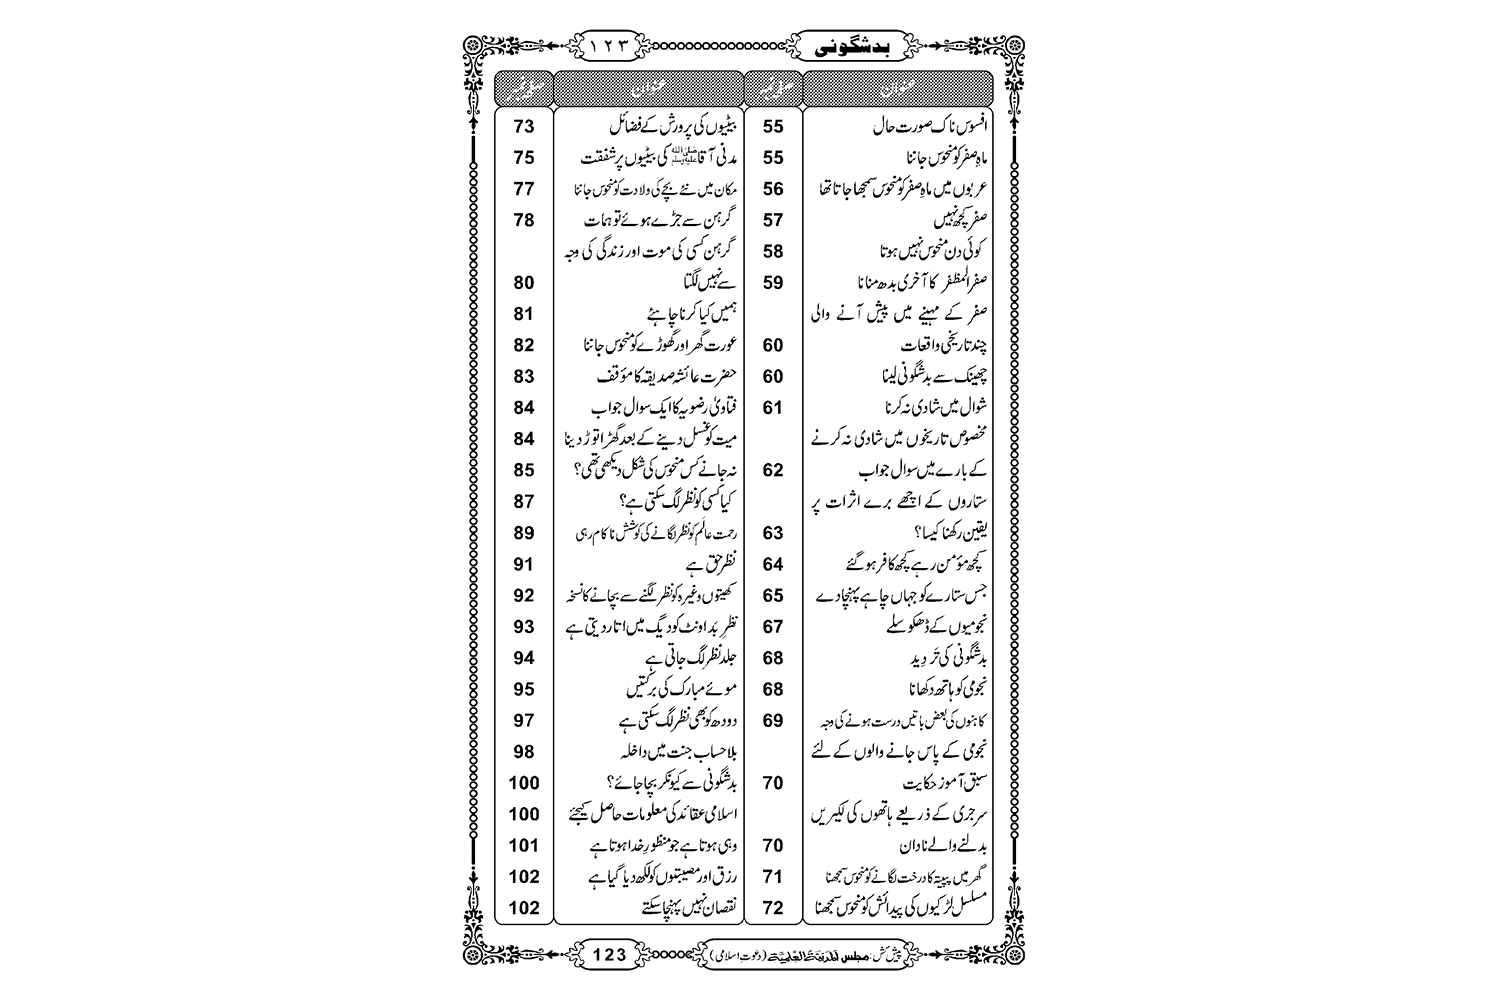 بدشگونی
۱۲۳
عنوان صفحہ نمبر عنوان صفحہ نمبر
افسوس ناک صورت حال 55
ماہِ صفر کو منحوس جاننا 55
عربوں میں ماہِ صفر کو منحوس سمجھا جاتا تھا 56
صفر کچھ نہیں 57
کوئی دن منحوس نہیں ہوتا 58
صفر المظفر کا آخری بدھ منانا 59
صفر کے مہینے میں پیش آنے والی
چند تاریخی واقعات 60
چھینک سے بدشگونی لینا 60
شوال میں شادی نہ کرنا 61
مخصوص تاریخوں میں شادی نہ کرنے
کے بارے میں سوال جواب 62
ستاروں کے اچھے برے اثرات پر
یقین رکھنا کیسا؟ 63
کچھ مؤمن رہے کچھ کافر ہوگئے 64
جس ستارے کو جہاں چاہے پہنچا دے 65
نجومیوں کے ڈھکوسلے 67
بدشگونی کی تَردِید 68
نجومی کو ہاتھ دکھانا 68
کاہنوں کی بعض باتیں درست ہونے کی وجہ 69
نجومی کے پاس جانے والوں کے لئے
سبق آموز حکایت 70
سرجری کے ذریعے ہاتھوں کی لکیریں
بدلنے والے نادان 70
گھر میں پپیتہ کا درخت لگانے کو منحوس سمجھنا 71
مسلسل لڑکیوں کی پیدائش کو منحوس سمجھنا 72
بیٹیوں کی پرورش کے فضائل 73
مدنی آقا صلی اللہ علیہ وسلم کی بیٹیوں پر شفقت 75
مکان میں نئے بچے کی ولادت کو منحوس جاننا 77
گرہن سے جڑے ہوئے توہمات 78
گرہن کسی کی موت اور زندگی کی وجہ
سے نہیں لگتا 80
ہمیں کیا کرنا چاہئے 81
عورت گھر اور گھوڑے کو منحوس جاننا 82
حضرت عائشہ صدیقہ کا مؤقف 83
فتاویٰ رضویہ کا ایک سوال جواب 84
میت کو غسل دینے کے بعد گھڑا توڑ دینا 84
نہ جانے کس منحوس کی شکل دیکھی تھی؟ 85
کیا کسی کو نظر لگ سکتی ہے؟ 87
رحمت عالَم کو نظر لگانے کی کوشش ناکام رہی 89
نظر حق ہے 91
کھیتوں وغیرہ کو نظر لگنے سے بچانے کا نسخہ 92
نظرِ بَد اونٹ کو دیگ میں اتار دیتی ہے 93
جلد نظر لگ جاتی ہے 94
موئے مبارک کی برکتیں 95
دودھ کو بھی نظر لگ سکتی ہے 97
بلا حساب جنت میں داخلہ 98
بدشگونی سے کیونکر بچا جائے؟ 100
اسلامی عقائد کی معلومات حاصل کیجئے 100
وہی ہوتا ہے جو منظورِ خدا ہوتا ہے 101
رزق اور مصیبتوں کو لکھ دیا گیا ہے 102
نقصان نہیں پہنچا سکتے 102
پیش کش: مجلس المدینۃ العلمیۃ (دعوت اسلامی)
123